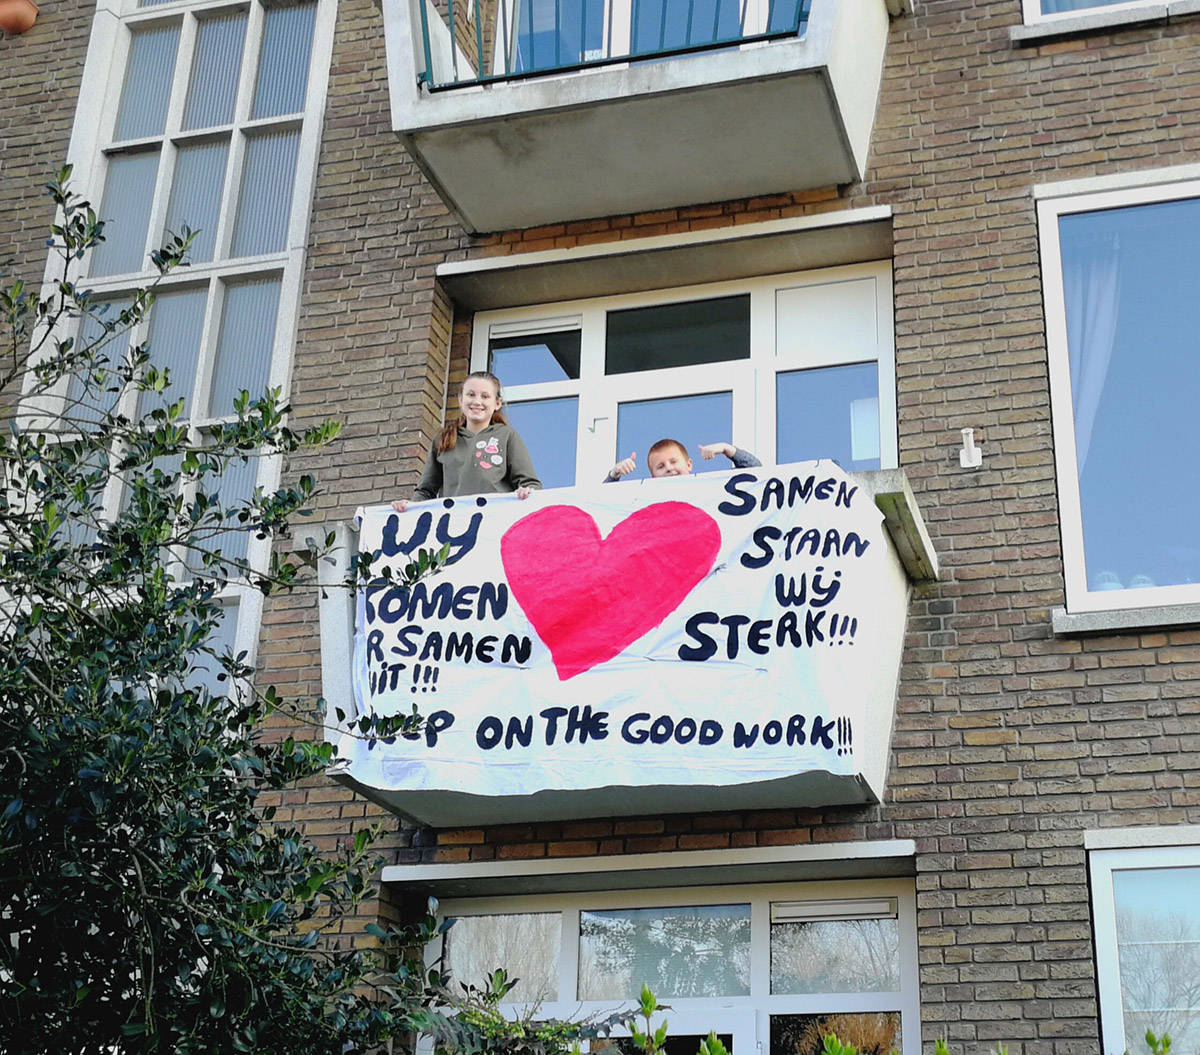 WIJ
KOMEN
R SAMEN
UIT !!!
SAMEN
STAAN
WIJ
STERK!!!
KEEP ON THE GOOD WORK!!!